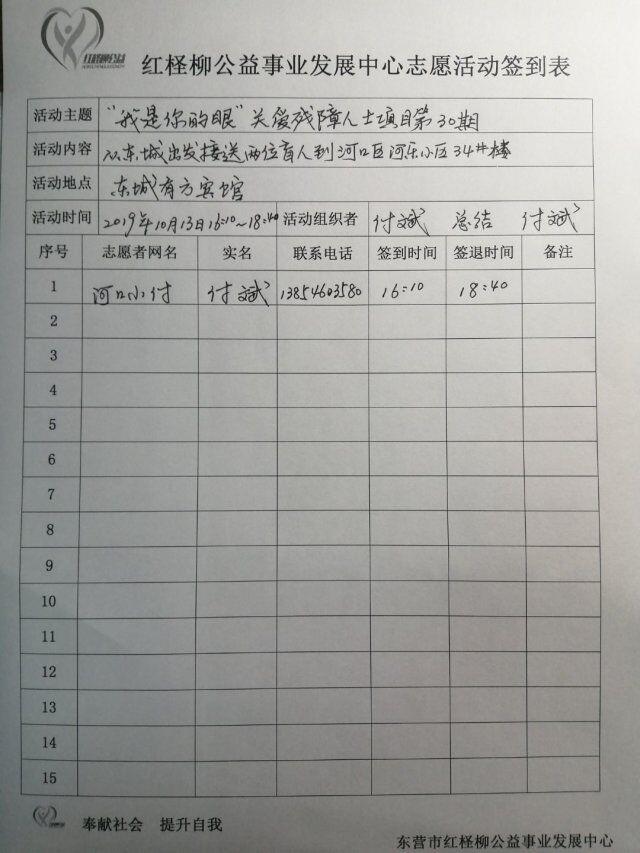 红柽柳公益
红柽柳公益事业发展中心志愿活动签到表
活动主题 “我是你的眼”关爱残障人士项目第30期
活动内容 从东城出发接送两位盲人到河口区河乐小区34#楼
活动地点 东城有方宾馆
活动时间 2019年10月13日16:10~18:40 活动组织者 付斌 总结 付斌
序号 志愿者网名 实名 联系电话 签到时间 签退时间 备注
1 河口小付 付斌 13854603580 16:10 18:40
2
3
4
5
6
7
8
9
10
11
12
13
14
15
奉献社会 提升自我
东营市红柽柳公益事业发展中心